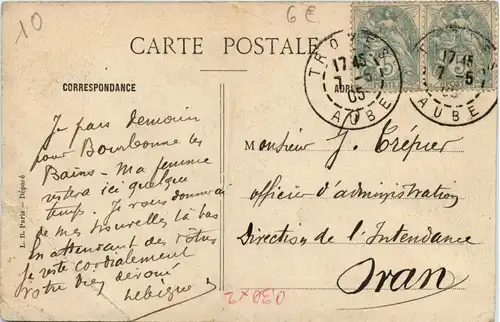 10
6€
CARTE POSTALE
TROYES
17 45
7 -5
05
AUBE
TROYES
17 45
7 5
05
AUBE
5
5
CORRESPONDANCE
ADR
Je pars demain
pour Bourbonne les
Bains - Ma femme
restera ici quelque
temps. Je vous donnerai
de mes nouvelles là bas
En attendant des vôtres
je reste cordialement
votre bien dévoué
Lebègue
L. B. Paris - Déposé
Monsieur J. Crépier
officier d'administration
Direction de l'Intendance
Oran